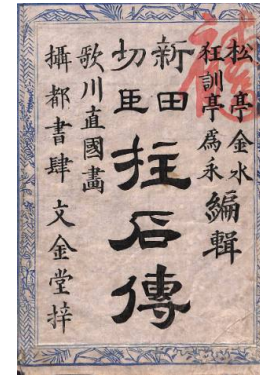 松亭金水
狂訓亭爲永
編輯
新田
功臣
拄石傳
歌川直國畵
攝都書肆 文金堂梓